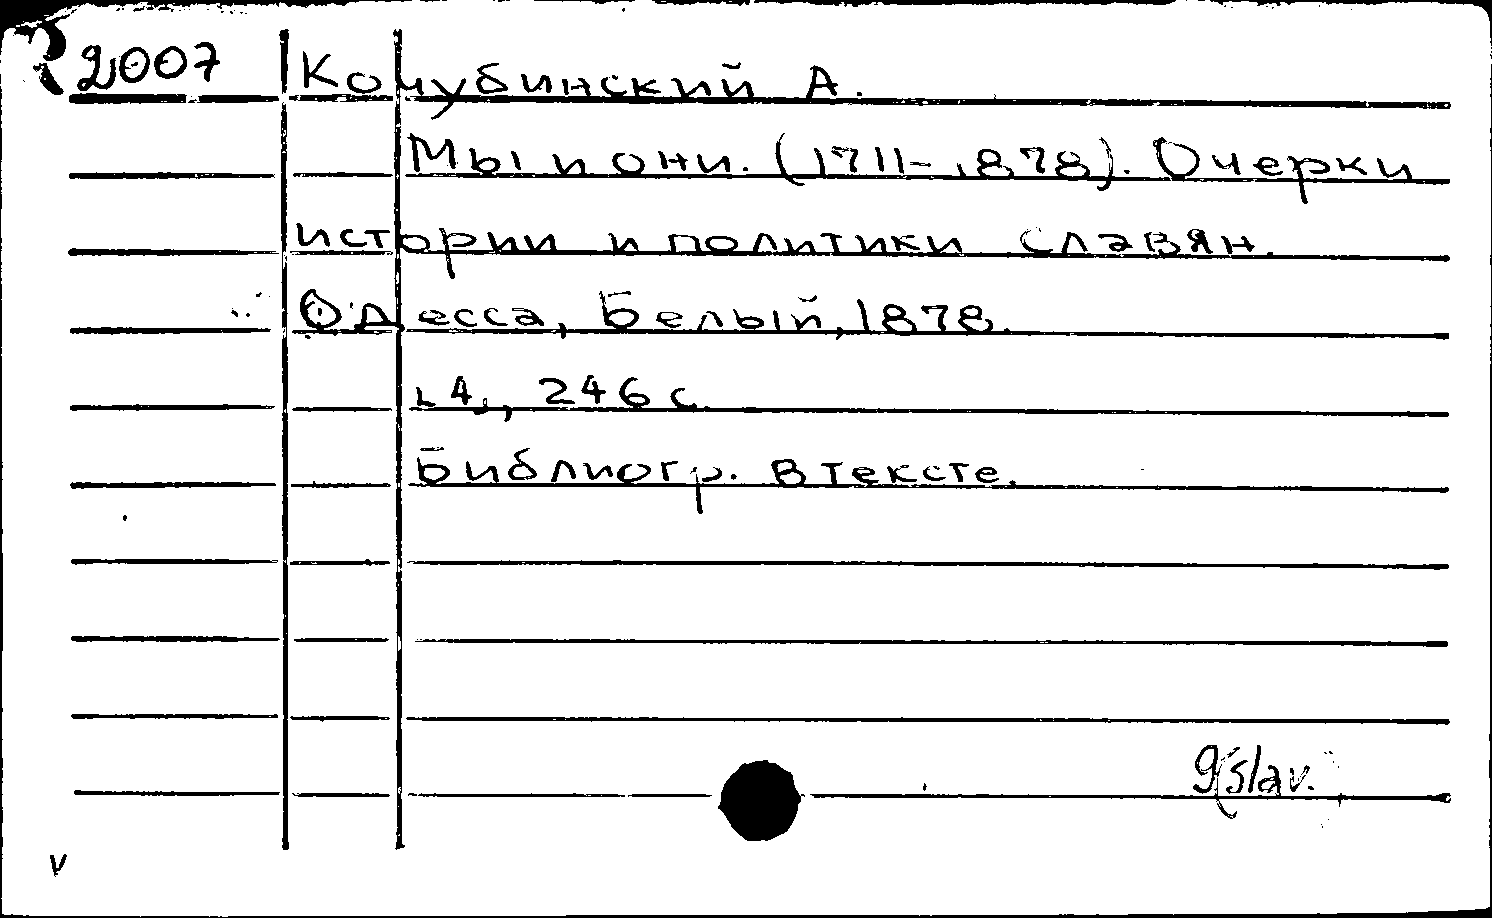 R 2007 Кочубинский А.
Мы и они. (1711-1878). Очерки
истории и политики славян.
Одесса, Белый, 1878.
246 с.
Библиогр. в тексте.
9(slav.)
v